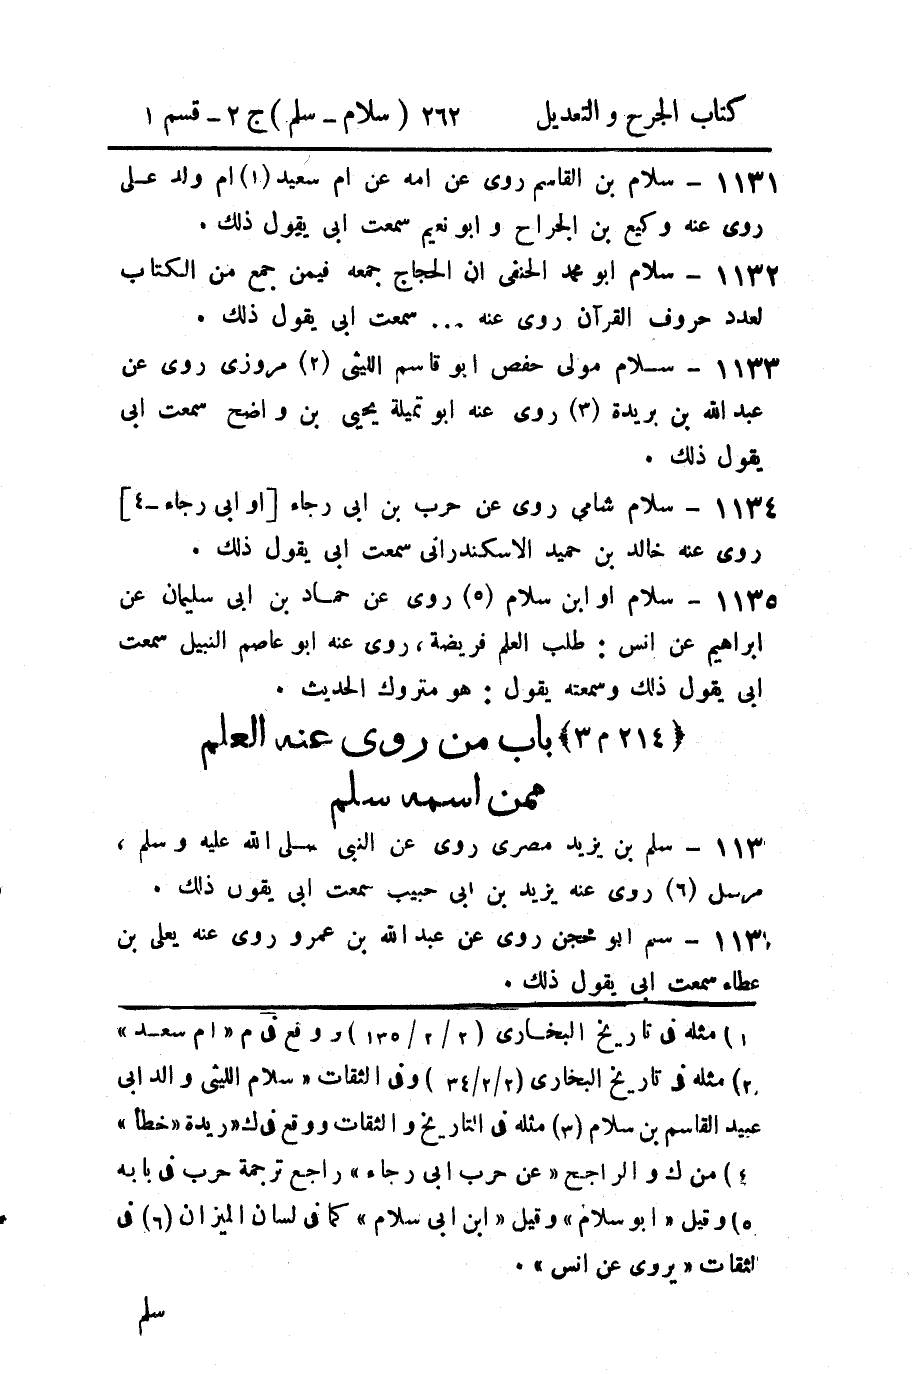 كتاب الجرح و التعديل ٢٦٢ ( سلام ـ سلم ) ج ٢ ـ قسم ١
١١٣١ - سلام بن القاسم روى عن امه عن ام سعيد (١) ام ولد عـلى
روى عنه وكيع بن الجراح و ابو نعيم سمعت ابى يقول ذلك .
١١٣٢ - سلام ابو محمد الحنفى ان الحجاج جمعه فيمن جمع من الكتاب
لعدد حروف القرآن روى عنه ... سمعت ابى يقول ذلك .
١١٣٣ - سـلام مولى حفص ابو قاسم الليثى (٢) مروزى روى عن
عبد الله بن بريدة (٣) روى عنه ابو تميلة يحيى بن واضح سمعت ابى
يقول ذلك .
١١٣٤ - سلام شامي روى عن حرب بن ابى رجاء [او ابى رجاء -٤]
روى عنه خالد بن حميد الاسكندرانى سمعت ابى يقول ذلك .
١١٣٥ - سلام او ابن سلام (٥) روى عن حمـاد بن ابى سليمان عن
ابراهيم عن انس : طلب العلم فريضة ، روى عنه ابو عاصم النبيل سمعت
ابى يقول ذلك وسمعته يقول : هو متروك الحديث .
﴿٢١٤ م ٣﴾ باب من روى عنه العلم
ممن اسمه سلم
١١٣ - سلم بن يزيد مصرى روى عن النبى صـلى الله عليه و سلم ،
مرسل (٦) روى عنه يزيد بن ابى حبيب سمعت ابى يقول ذلك .
١١٣ - سلم ابو محجن روى عن عبد الله بن عمرو روى عنه يعلى بن
عطاء سمعت ابى يقول ذلك .
١) مثله فى تاريخ البخـارى ( ٢ / ٢ / ١٣٥ ) و وقع فى م « ام سعـد »
٢) مثله فى تاريخ البخارى (٢/٢/ ٣٤ ) وفى الثقات « سلام الليثى و الد ابى
عبيد القاسم بن سلام (٣) مثله فى التاريخ و الثقات ووقع فى ك « ريدة « خطأ »
٤ ) من ك و الراجح « عن حرب ابى رجاء » راجع ترجمة حرب فى بابه
٥) و قيل « ابو سلام » وقيل « ابن ابى سلام » كما فى لسان الميزان (٦) فى
لثقات « يروى عن انس » .
سلم